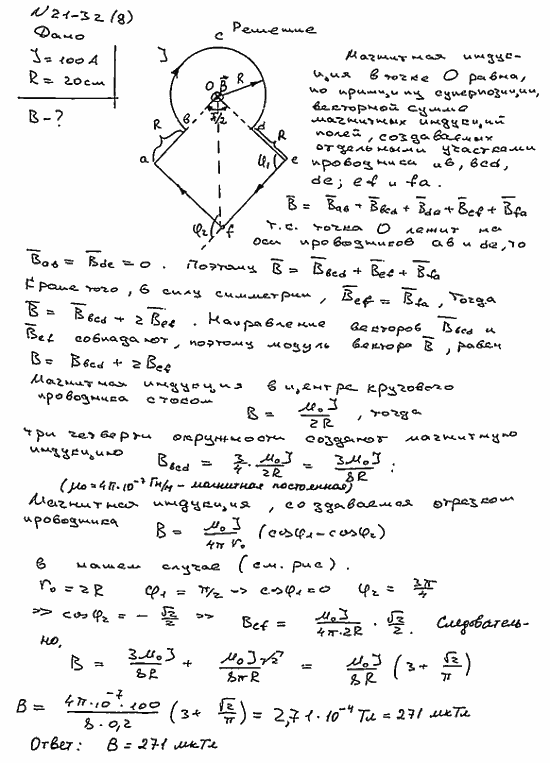 N 21-32 (8)
Дано
J = 100 А
R = 20 см
B - ?
Решение
J
c
O
B̄
R
π/2
b
d
R
R
a
e
φ₁
φ₂
f
Магнитная индук-
ция в точке O равна,
по принципу суперпозиции,
векторной сумме
магнитных индукций
полей, создаваемых
отдельными участками
проводника ab, bcd,
de; ef и fa.
B̄ = B̄ab + B̄bcd + B̄de + B̄ef + B̄fa
Т.к. точка O лежит на
оси проводников ab и de, то
B̄ab = B̄de = 0. Поэтому B̄ = B̄bcd + B̄ef + B̄fa
Кроме того, в силу симметрии, B̄ef = B̄fa, тогда
B̄ = B̄bcd + 2B̄ef. Направление векторов B̄bcd и
B̄ef совпадают, поэтому модуль вектора B̄, равен
B = Bbcd + 2Bef
Магнитная индукция в центре кругового
проводника с током B = μ₀J/2R, тогда
три четверти окружности создают магнитную
индукцию Bbcd = 3/4 · μ₀J/2R = 3μ₀J/8R :
(μ₀ = 4π·10⁻⁷ Гн/м - магнитная постоянная)
Магнитная индукция, создаваемая отрезком
проводника B = μ₀J/4πr₀ (cosφ₁ - cosφ₂)
в нашем случае (см. рис).
r₀ = 2R φ₁ = π/2 -> cosφ₁ = 0 φ₂ = 3π/4
=> cosφ₂ = - √2/2 => Bef = μ₀J/4π·2R · √2/2. Следователь-
но,
B = 3μ₀J/8R + μ₀J√2/8πR = μ₀J/8R (3 + √2/π)
B = 4π·10⁻⁷·100/8·0,2 (3 + √2/π) = 2,71·10⁻⁴ Тл = 271 мкТл
Ответ: B = 271 мкТл